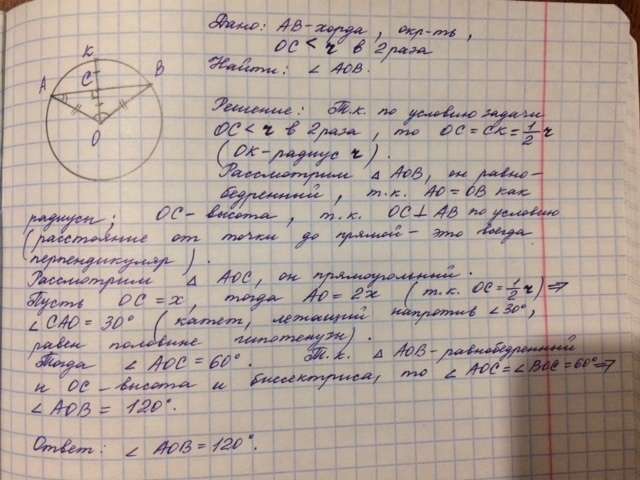 Дано: АВ-хорда, окр-ть,
ОС < r в 2 раза
Найти: ∠ АОВ.
Решение: Т.к. по условию задачи
ОС < r в 2 раза, то ОС = СК = 1/2 r
(ОК-радиус r).
Рассмотрим Δ АОВ, он равно-
бедренный, т.к. АО = ОВ как
радиусы. ОС-высота, т.к. ОС⊥АВ по условию
(расстояние от точки до прямой - это всегда
перпендикуляр).
Рассмотрим Δ АОС, он прямоугольный.
Пусть ОС = х, тогда АО = 2х (т.к. ОС = 1/2 r) ⇒
∠ САО = 30° (катет, лежащий напротив ∠ 30°,
равен половине гипотенузы).
Тогда ∠ АОС = 60°. Т.к. Δ АОВ-равнобедренный
и ОС-высота и биссектриса, то ∠ АОС = ∠ ВОС = 60° ⇒
∠ АОВ = 120°.
Ответ: ∠ АОВ = 120°.
А
К
С
О
В